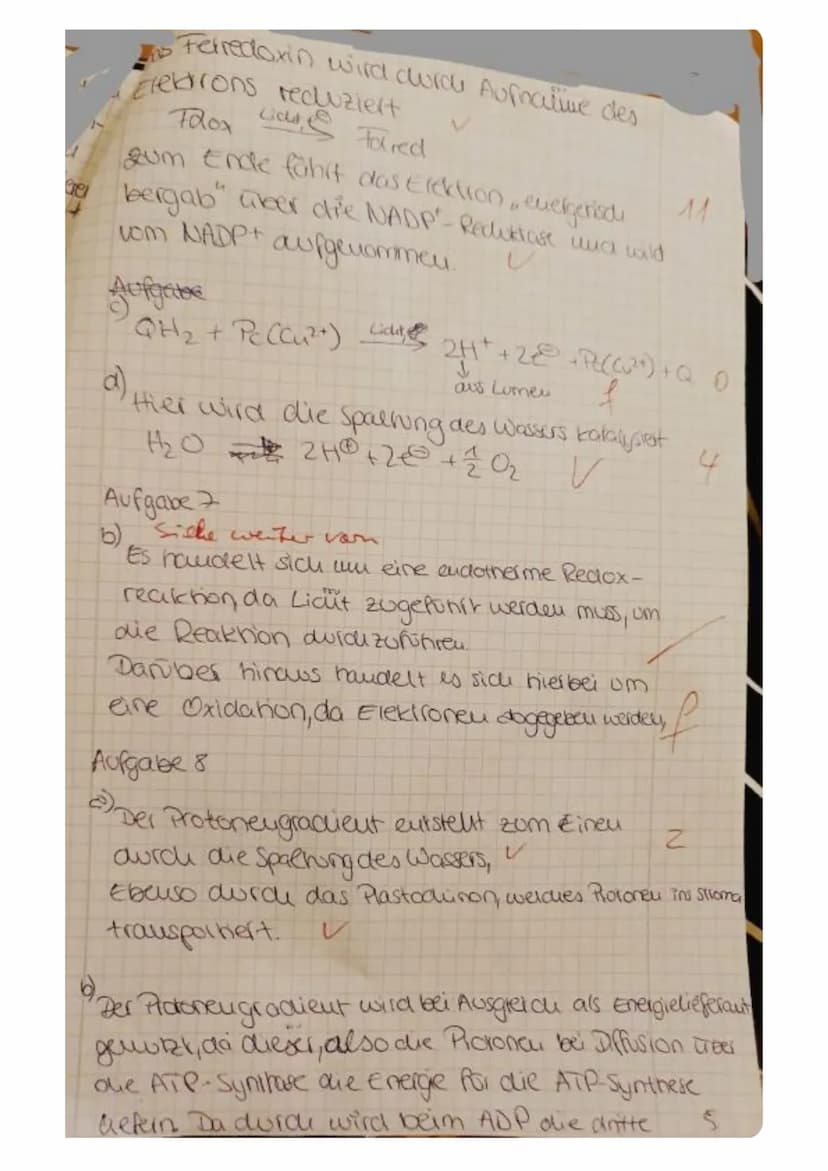 Ferredoxin wird durch Aufnahme des
Elektrons reduziert ✓
Fdox Licht, e⊖ Fdred
zum Ende fährt das Elektron „energetisch 11
bergab" über die NADP+-Reduktase und wird
vom NADP+ aufgenommen. ✓
Aufgabe
c)
QH2 + Pc(Cu2+) Licht, 2H+ + 2e⊖ + Pc(Cu2+) + Q 0
↓
aus Lumen f
d) Hier wird die Spaltung des Wassers katalysiert
H2O 2H⊕ + 2e⊖ + 1/2 O2 ✓ 4
Aufgabe 7
b) Siehe weiter vorn
Es handelt sich um eine endotherme Redox-
reaktion, da Licht zugeführt werden muss, um
die Reaktion durchzuführen.
Darüber hinaus handelt es sich hierbei um
eine Oxidation, da Elektronen abgegeben werden, f
Aufgabe 8
a) Der Protonengradient entsteht zum Einen 2
durch die Spaltung des Wassers, ✓
Ebenso durch das Plastochinon, welches Protonen ins Stroma
transportiert. ✓
b) Der Protonengradient wird bei Ausgleich als Energielieferant
genutzt, da dieser, also die Protonen bei Diffusion über
die ATP-Synthase die Energie für die ATP-Synthese
liefern. Dadurch wird beim ADP die dritte 5